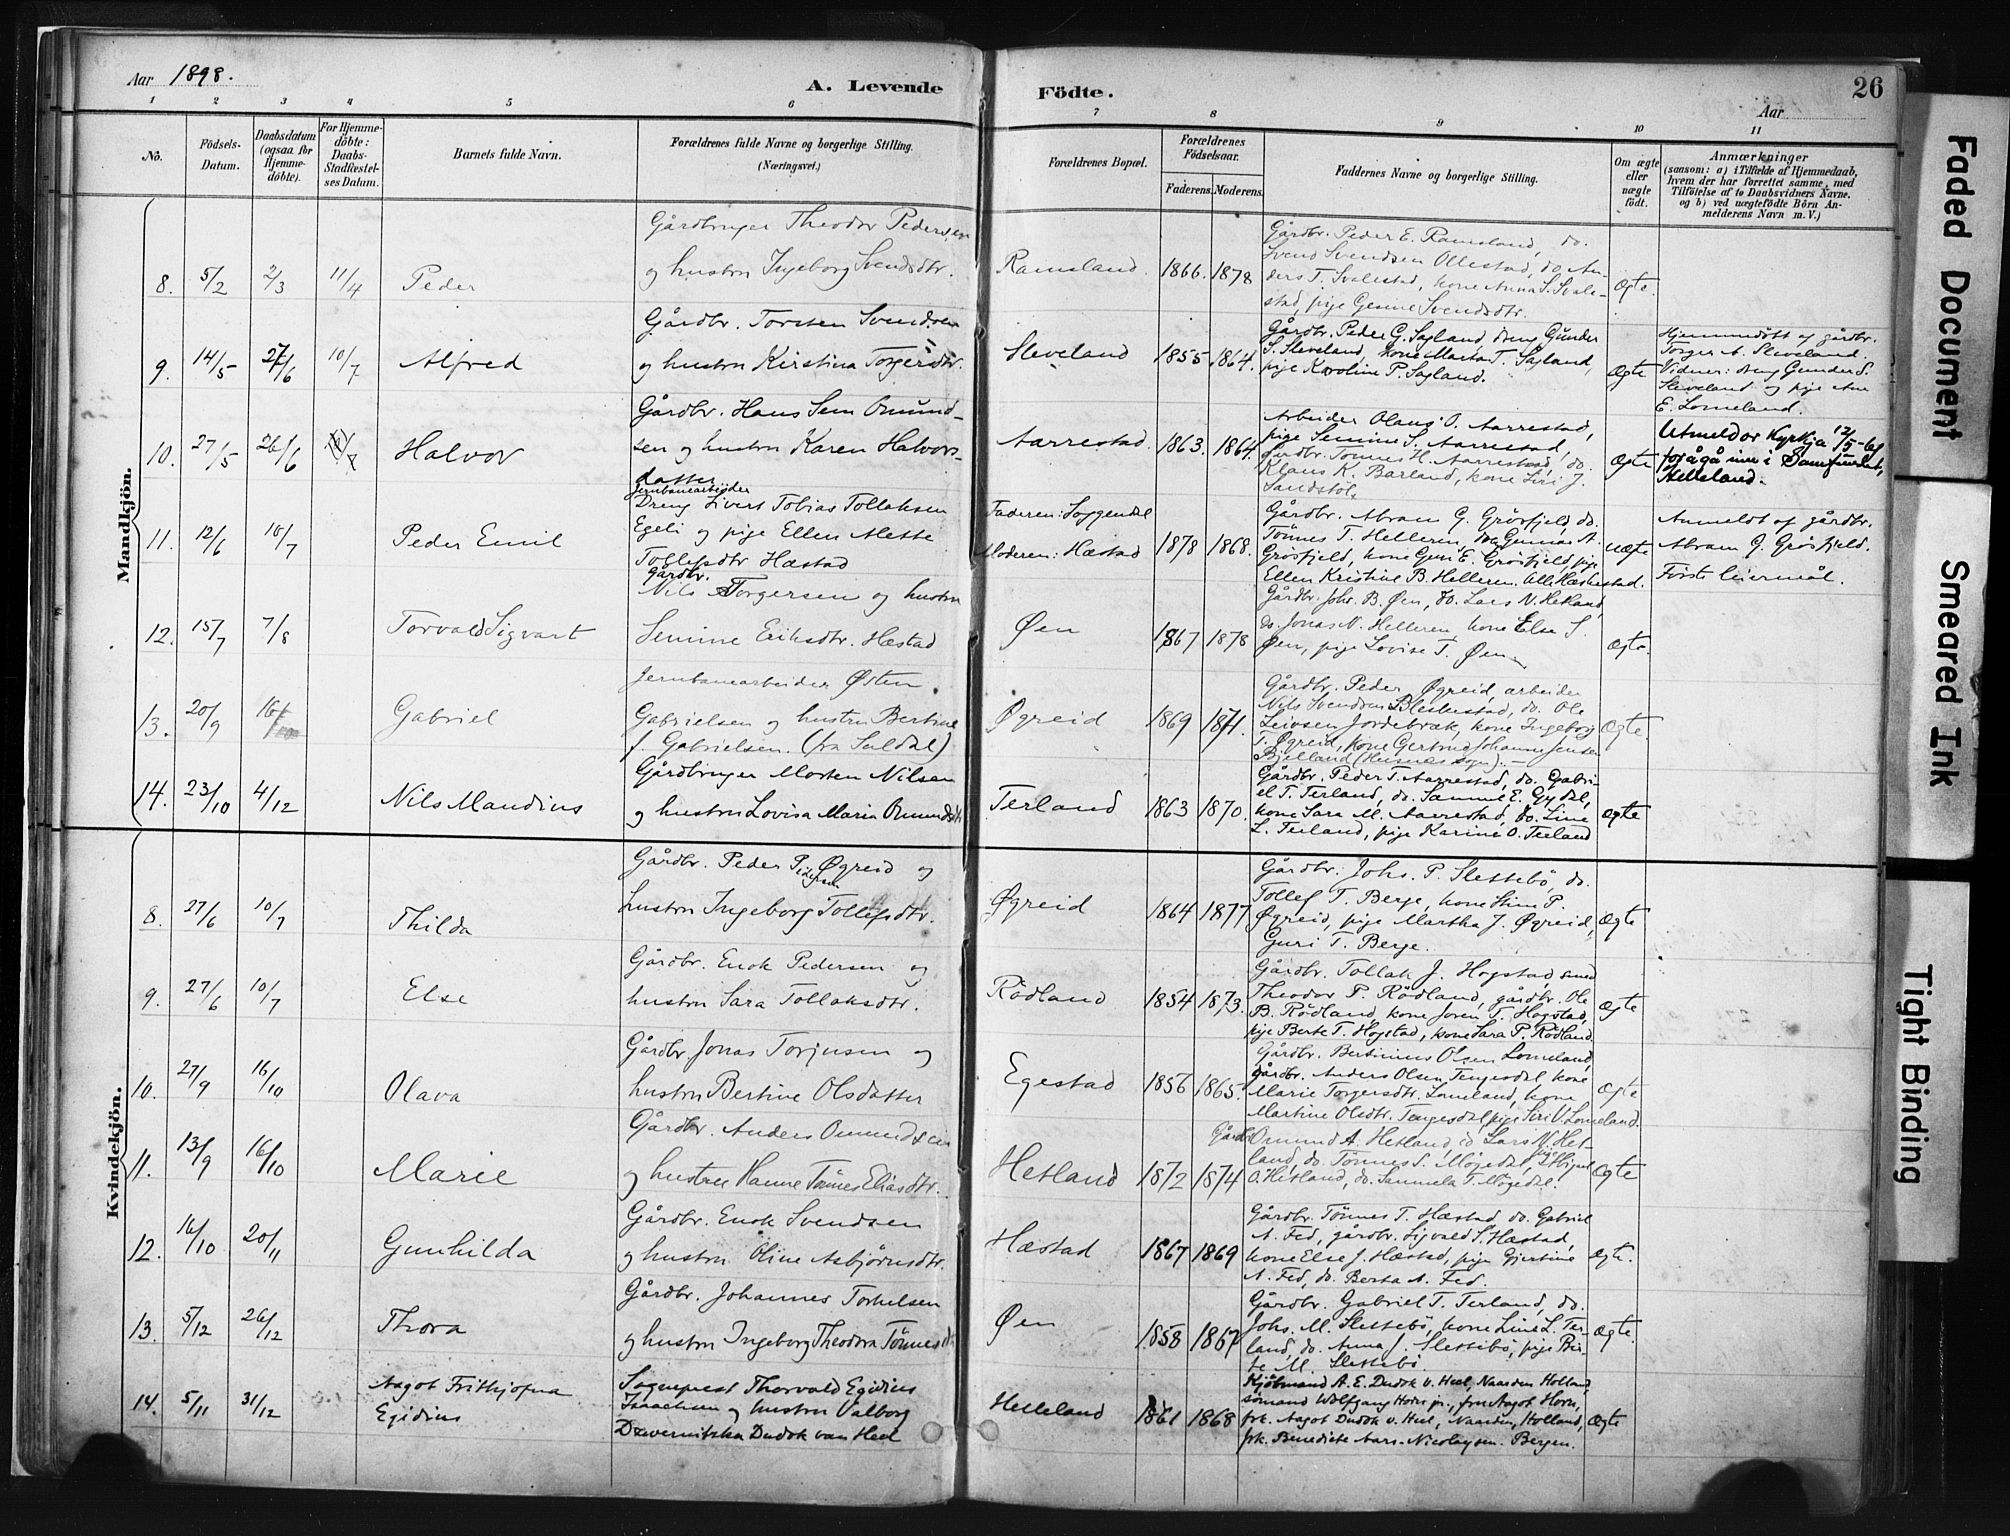 Aar 1898.
A. Levende
Födte.
Aar
26
1 2 3 4 5 6 7 8 9 10 11
No.
Födsels-
Datum.
Daabsdatum
(ogsaa for
Hjemme-
döbte).
For Hjemme-
döbte:
Daabs-
Stadfæstel-
ses Datum.
Barnets fulde Navn.
Forældrenes fulde Navne og borgerlige Stilling.
(Næringsvei.)
Forældrenes Bopæl.
Forældrenes
Födselsaar.
Faderens. Moderens.
Faddernes Navne og borgerlige Stilling.
Om ægte
eller
uægte
født.
Anmærkninger
(saasom: a) i Tilfælde af Hjemmedaab,
hvem der har forrettet samme, med
Tilföielse af to Daabsvidners Navne.
og b) ved uægtefödte Börn An-
melderens Navn m. V.)
Mandkjön.
8. 5/2 2/3 11/4 Peder
Gårdbruger Theodor Pedersen
og hustru Ingeborg Svendsdtr.
Ramsland. 1866. 1878
Gårdbr. Peder E. Ramsland, do.
Svend Svendsen Ollestad, do. An-
ders T. Svalestad, kone Anna S. Svale-
stad, pige Gemine Svendsdtr.
Ægte.
9. 14/5 27/6 10/7 Alfred
Gårdbr. Torsten Svendsen
og hustru Kirstina Torgersdtr.
Sleveland 1855 1864.
Gårdbr. Peder G. Sagland, dreng Gunder
S. Sleveland, kone Marta T. Sagland,
pige Karoline P. Sagland.
Ægte
Hjemmedöbt af gårdbr.
Torger A. Sleveland.
Vidner: dreng Gunder S.
Sleveland og pige Ane
E. Lomeland.
10. 27/5 26/6 Halvor
Gårdbr. Hans Sem Omund-
sen og hustru Karen Halvors-
datter
Aarrestad. 1863. 1864.
Arbeider Olaus O. Aarrestad,
pige Semine S. Aarrestad,
Gardbr. Tönnes H. Aarrestad, do.
Klaus K. Barland, kone Siri J.
Sandstöl.
Ægte
Utmeld or Kyrkja 12/5-61
for å gå inn i Samfundet,
Helleland.
11. 12/6 10/7 Peder Emil
Jernbanearbeider
Dreng Sivert Tobias Tollaksen
Egeli og pige Ellen Mette
Tollefsdtr Hæstad
Faderen: Soggendal
Moderen: Hæstad 1878 1868.
Gårdbr. Abram G. Grösfjeld, do.
Tönnes T. Helleren, do. Gunnar A.
Grösfjeld, kone Guri E. Grösfjeld, pige
Ellen Kristine B. Helleren. Alle Hæskestad.
uægte
Anmeldt af gårdbr.
Abram G. Grösfjeld.
Förste leiermål.
12. 15/7 7/8 Torvald Sigvart
Gårdbr.
Nils Torgersen og hustru
Semine Eriksdtr. Hæstad
Øen 1867 1878
Gårdbr. Johs. B. Øen, do. Lars N. Hetland,
do. Jonas N. Helleren, kone Else S.
Øen, pige Lovise T. Øen.
Ægte.
13. 20/9 16/10 Gabriel
Jernbanearbeider Østen
Gabrielsen og hustru Bertine
f. Gabrielsen. (fra Suldal)
Øgreid 1869 1871.
Gårdbr. Peder Øgreid, arbeider
Nils Svendsen Bleskestad, do. Ole
Leivsen Jordebræk, kone Ingeborg
T. Øgreid, kone Gertrud Johanne Jensen
Bjelland (Heisnes sogn).
Ægte.
14. 23/10 4/12 Nils Maudius
Gårdbruger Morten Nilsen
og hustru Lovisa Maria Omundsdtr
Terland 1863 1870.
Gårdbr. Peder T. Aarrestad, do. Gabri-
el T. Terland, do. Samuel E. Gydal,
kone Sara M. Aarrestad, do. Line
L. Terland, pige Karine O. Terland
ægte
Kvindekjön.
8. 27/6 10/7 Thilda
Gårdbr. Peder P. Øgreid og
Pedersen
hustru Ingeborg Tollefsdtr.
Øgreid 1864 1877
Gårdbr. Johs. P. Slettebö, do.
Tollef T. Berge, kone Stine P.
Øgreid, pige Martha J. Øgreid,
Guri T. Berge.
Ægte
9. 27/6 10/7 Else
Gårdbr. Enok Pedersen og
hustru Sara Tollaksdtr.
Rödland 1854 1873.
Gårdbr. Tollak J. Hogstad, smed
Theodor P. Rödland, gårdbr. Ole
B. Rödland, kone Joren T. Hogstad,
pige Berte T. Hogstad, kone Sara P. Rödland.
Ægte
10. 27/9 16/10 Olava
Gårdbr. Jonas Torjusen og
hustru Bertine Olsdatter
Egestad 1856 1865.
Gårdbr. Bertinius Olsen Lomeland,
gårdbr. Anders Olsen Tengesdal, kone
Marie Torgersdtr. Lomeland, kone
Martine Olsdtr. Tengesdal, pige Siri V. Lomeland.
Ægte
11. 13/9 16/10 Marie
Gårdbr. Anders Omundsen
og hustru Hanne Tönnes Eliasdtr.
Hetland 1872 1874
Gårdbr. Omund A. Hetland, do Lars N. Het-
land, do. Tönnes S. Mögedal, pige
O. Hetland, do. Samuela T. Mögedal.
Ægte
12. 16/10 20/11 Gunhilda
Gårdbr. Enok Svendsen
og hustru Oline Asbjörnsdtr.
Hæstad 1867 1869
Gårdbr. Tönnes T. Hæstad, do. Gabriel
A. Fed, gårdbr. Sigvald S. Hæstad,
kone Else J. Hæstad, pige Gjertine
A. Fed, do. Berta A. Fed.
Ægte.
13. 5/12 26/12 Thora
Gårdbr. Johannes Torkelsen
og hustru Ingeborg Theodora Tönnesdtr
Øen 1858 1867
Gårdbr. Gabriel T. Terland, do.
Johs. M. Slettebö, kone Line L. Ter-
land, do. Anna J. Slettebö, pige Bir-
te M. Slettebö
Ægte.
14. 5/11 31/12 Aagot Frithjofna
Egidius
Sogneprest Thorvald Egidius
Isaachsen og hustru Valborg
Dzwernitzka Dudok van Heel
Helleland 1861 1868
Kjöbmand A. E. Dudok v. Heel, Naarden Holland,
sömand Wolfgang Horn jr., fru Aagot Horn,
frk. Aagot Dudok v. Heel, Naarden, Holland,
frk. Benedicte Aars-Nicolaysen. Bergen.
Ægte
Faded Document
Smeared Ink
Tight Binding